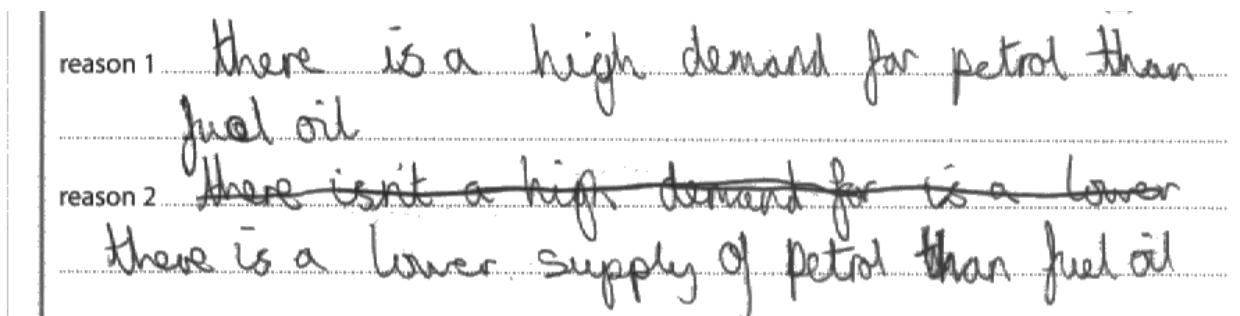 reason 1 there is a high demand for petrol than
fuel oil
reason 2 there isn't a high demand for is a lower
there is a lower supply of petrol than fuel oil